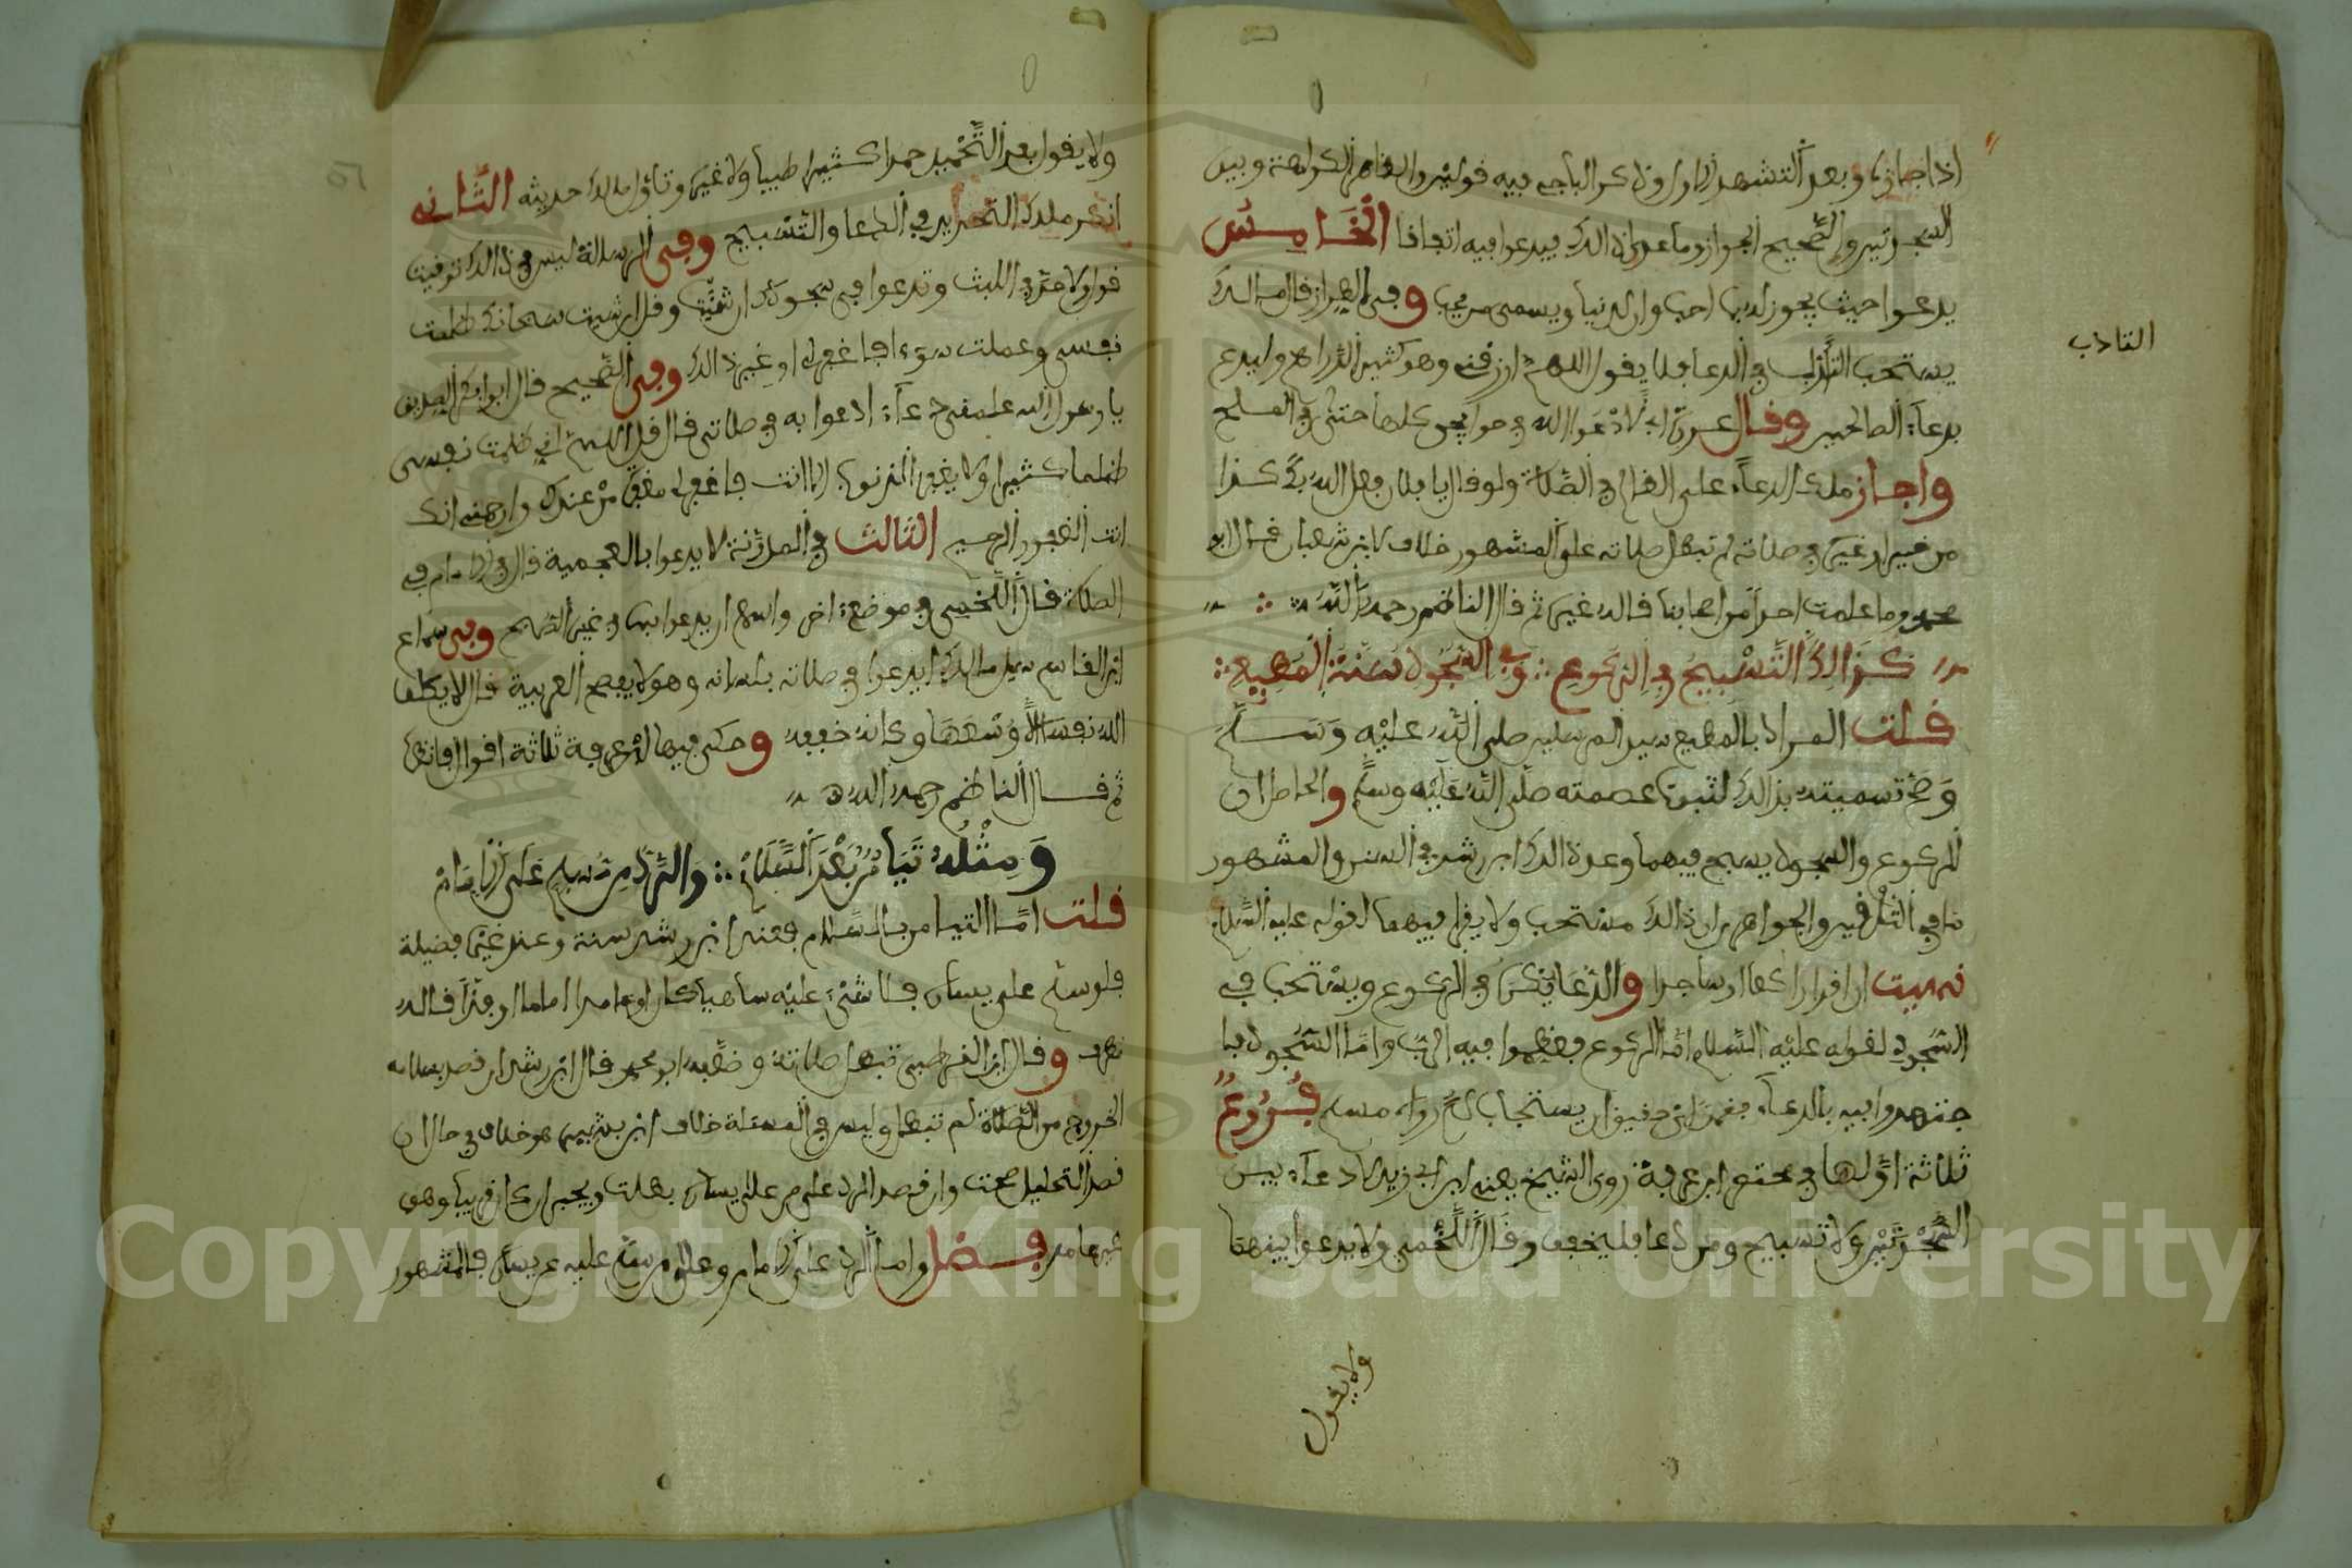 اذا جازا وبعد التشهد الاول وذكر الباجي فيه قولين والظاهر الكراهة وبين
السجدتين والصحيح الجواز وما عدى ذالك فيدعوا فيه اتفاقا الخامس
يدعوا حيث يجوز له بما احب وان لدنيا ويسمى من يحب وفي الطراز قال مالك
التادب
يستحب التأدب في الدعا فلا يقول اللهم ارزقني وهو كثير الدراهم وليدع
بدعاء الصالحين وقال عروة اني لادعوا الله في حوايجي كلها حتى في الملح
واجاز ملك الدعاء على الظالم في الصلاة ولو قال يا فلان فعل الله بك كذا
من غير او غيره في صلاته لم تبطل صلاته على المشهور خلاف لابن شعبان قال ابو
محمد وما علمت احدا من اصحابنا قاله غيره ثم قال الناظم رحمه الله
كذالك التسبيح في الركوع وفي السجود سنة المطيع
قلت المراد بالمطيع سيد المرسلين صلى الله عليه وسلم
وصح تسميته بذالك لثبوت عصمته صلى الله عليه وسلم والحاصل ان
الركوع والسجود يسبح فيهما وعد ذالك ابن رشد في السنن والمشهور
ما في التلقين والجواهر ان ذالك مستحب ولا يقرا فيهما لقوله عليه السلام
نهيت ان اقرا راكعا او ساجدا والدعا يكره في الركوع ويستحب في
السجود لقوله عليه السلام اما الركوع فعظموا فيه الرب واما السجود فا
جتهدوا فيه بالدعاء فقمن اي حقيق ان يستجاب لكم رواه مسلم فروع
ثلاثة اولها في مختصر ابن عرفة روى الشيخ يعني ابن ابي زيد لا دعاء بين
السجدتين ولا تسبيح ومن دعا فليخفف وقال اللخمي ولا يدعوا بينهما
ولا يقول
ولا يقول بعد التحميد حمدا كثيرا طيبا ولا غيره وتاول مالك حديثه الثاني
انكر ملك التحديد في الدعا والتسبيح وفي الرسالة ليس في ذالك توقيت
قول ولا حد في اللبث وتدعوا في سجودك ان شئت وقل ان شيت سبحانك ظلمت
نفسي وعملت سوءا فاغفر لي او غير ذالك وفي الصحيح قال ابو بكر الصديق
يا رسول الله علمني دعاء ادعوا به في صلاتي قال قل اللهم اني ظلمت نفسي
ظلما كثيرا ولا يغفر الذنوب الا انت فاغفر لي مغفرة من عندك وارحمني انك
انت الغفور الرحيم الثالث في المدونة لا يدعوا بالعجمية قال في الاحرام في
الصلاة قال اللخمي في موضع اخر واسع ان يدعوا بها في غير الصلاة وفي سماع
ابن القاسم سيل مالك ايدعوا في صلاته بلسانه وهو لا يفصح العربية قال لا يكلف
الله نفسا الا وسعها وكانه خففه وحكى فيها ابن عرفة ثلاثة اقوال فانظرها
ثم قال الناظم رحمه الله
ومثله تيامن بعد السلام والرد من سلم على الامام
قلت اما التيامن بالسلام فعند ابن رشد سنة وعند غيره فضيلة
فلو سلم على يساره فلا شئ عليه ساهيا كان او عامدا اماما او فذا قاله
مطرف وقال ابن القرطبي تبطل صلاته وضعفه ابو محمد قال ابن رشد ان قصد بسلامه
الخروج من الصلاة لم تبطل وليس في المسئلة خلاف ابن بشير هو خلاف في حال ان
قصد التحليل صحت وان قصد الرد على من على يساره بطلت ويجبر ان كان قريبا وهو
غير عامد فصل واما الرد على الامام وعلى من سلم عليه عن يساره فالمشهور